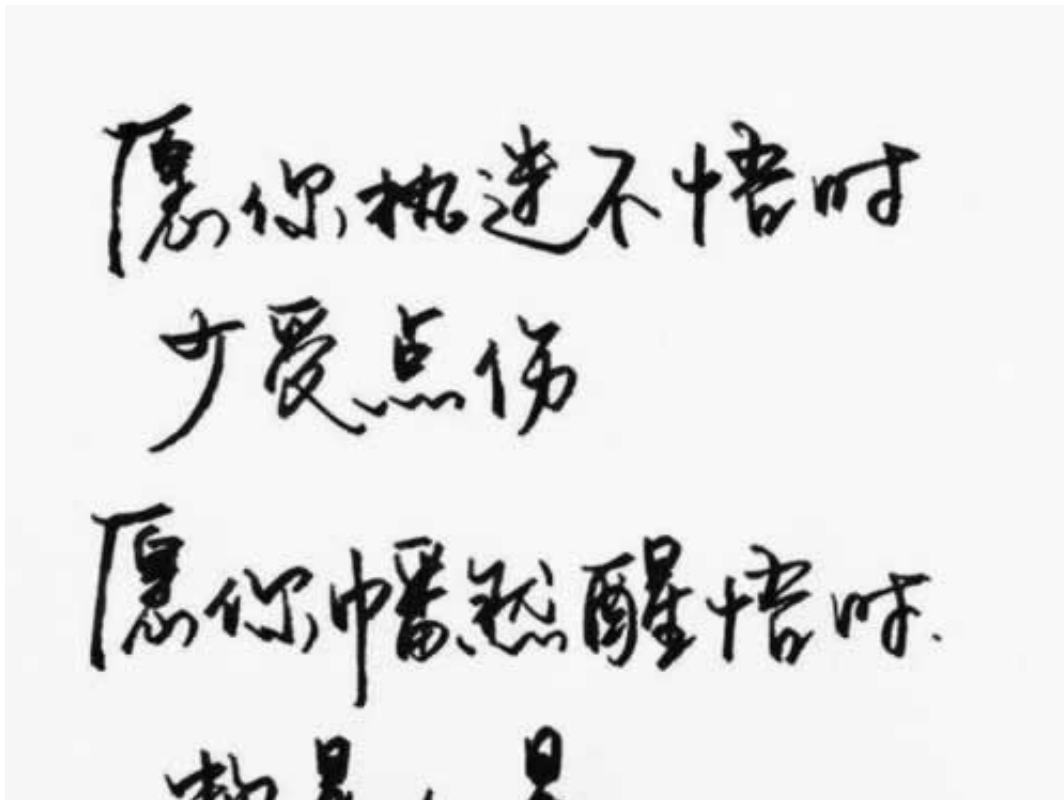 愿你执迷不悟时
少爱点伤
愿你幡然醒悟时.